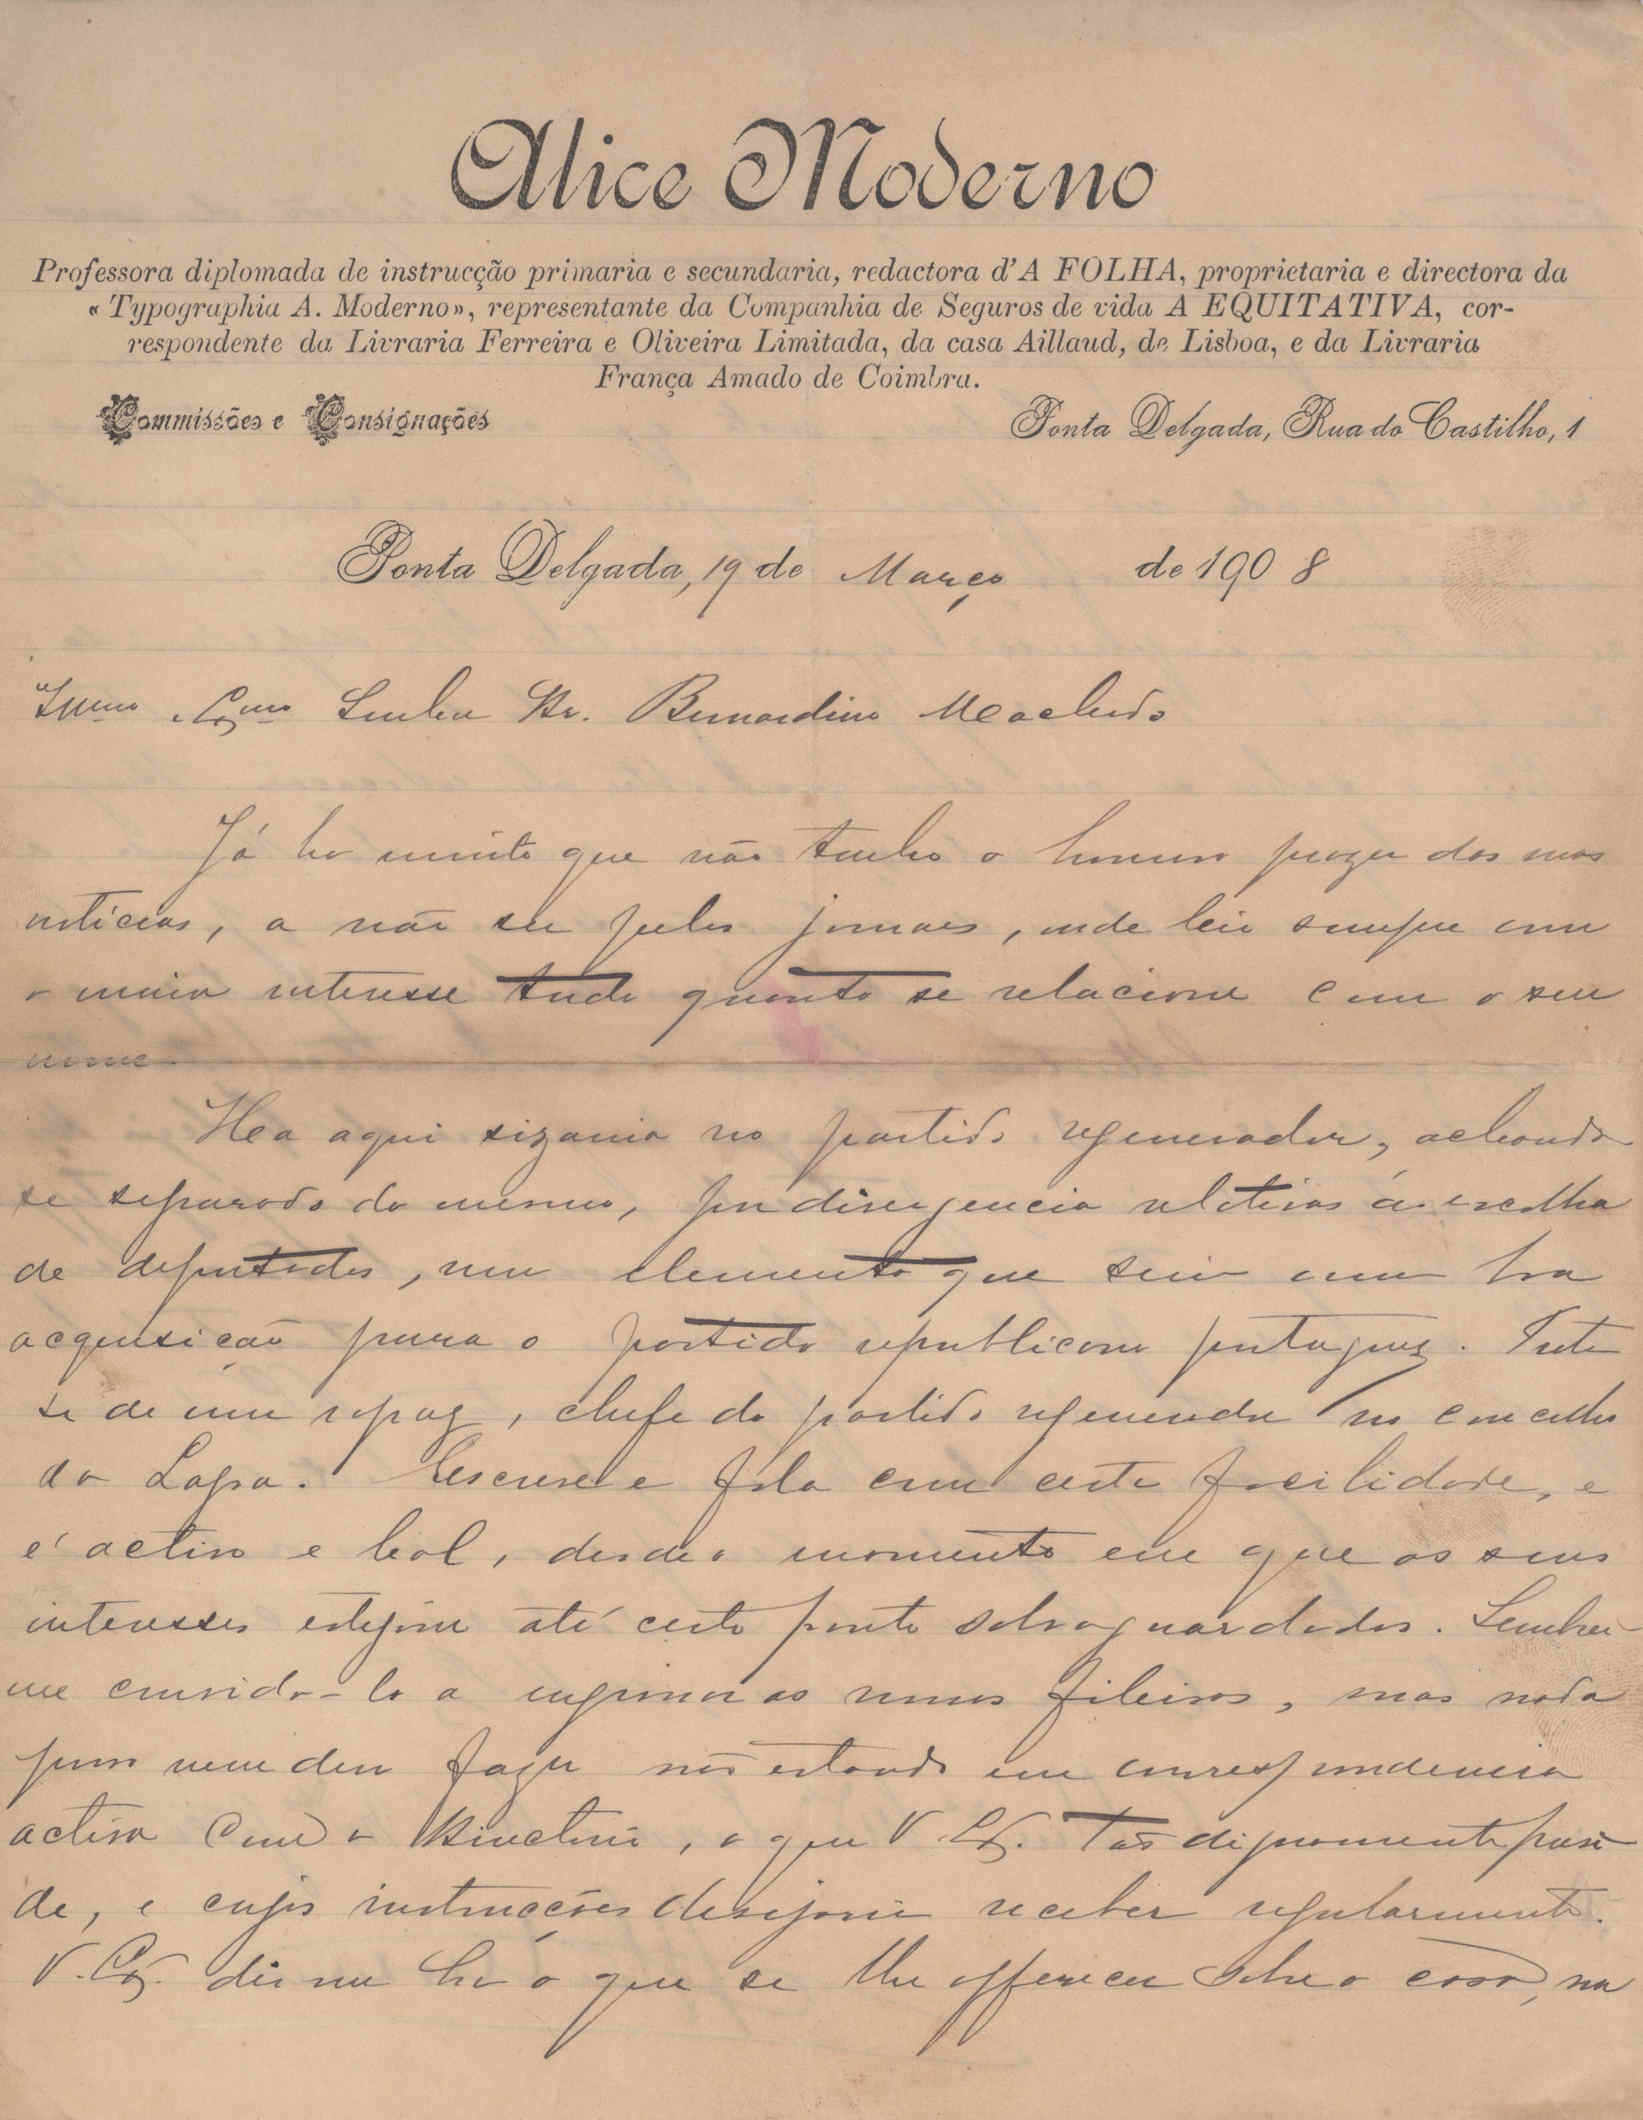 Alice Moderno
Professora diplomada de instrucção primaria e secundaria, redactora d'A FOLHA, proprietaria e directora da
«Typographia A. Moderno», representante da Companhia de Seguros de vida A EQUITATIVA, cor-
respondente da Livraria Ferreira e Oliveira Limitada, da casa Aillaud, de Lisboa, e da Livraria
França Amado de Coimbra.
Commissões e Consignações
Ponta Delgada, Rua do Castilho, 1
Ponta Delgada, 19 de Março de 1908
Illmo e Exmo Senhor Dr. Bernardino Machado
Já ha muito que não tenho o honroso prazer das suas
noticias, a não ser pelos jornaes, onde leio sempre com
o maior interesse tudo quanto se relacione com o seu
nome.
Ha aqui sizania no partido regenerador, achando-
se separado do mesmo, por divergencia relativas á escolha
de deputados, um elemento que seria uma boa
acquisição para o partido republicano portuguez. Trata-
se de um rapaz, chefe do partido regenerador no concelho
da Lagoa. Escreve e fala com certa facilidade, e
é activo e leal, desde o momento em que os seus
interesses estejam até certo ponto salvaguardados. Lembrei-
me convida-lo a ingressar as nossas fileiras, mas nada
posso nem devo fazer não estando em correspondencia
activa com o Directorio, a que V. Ex. tão dignamente presi-
de, e cujas instrucções desejaria receber regularmente.
V. Ex. dir-me-ha o que se lhe offerecer sobre o caso, na